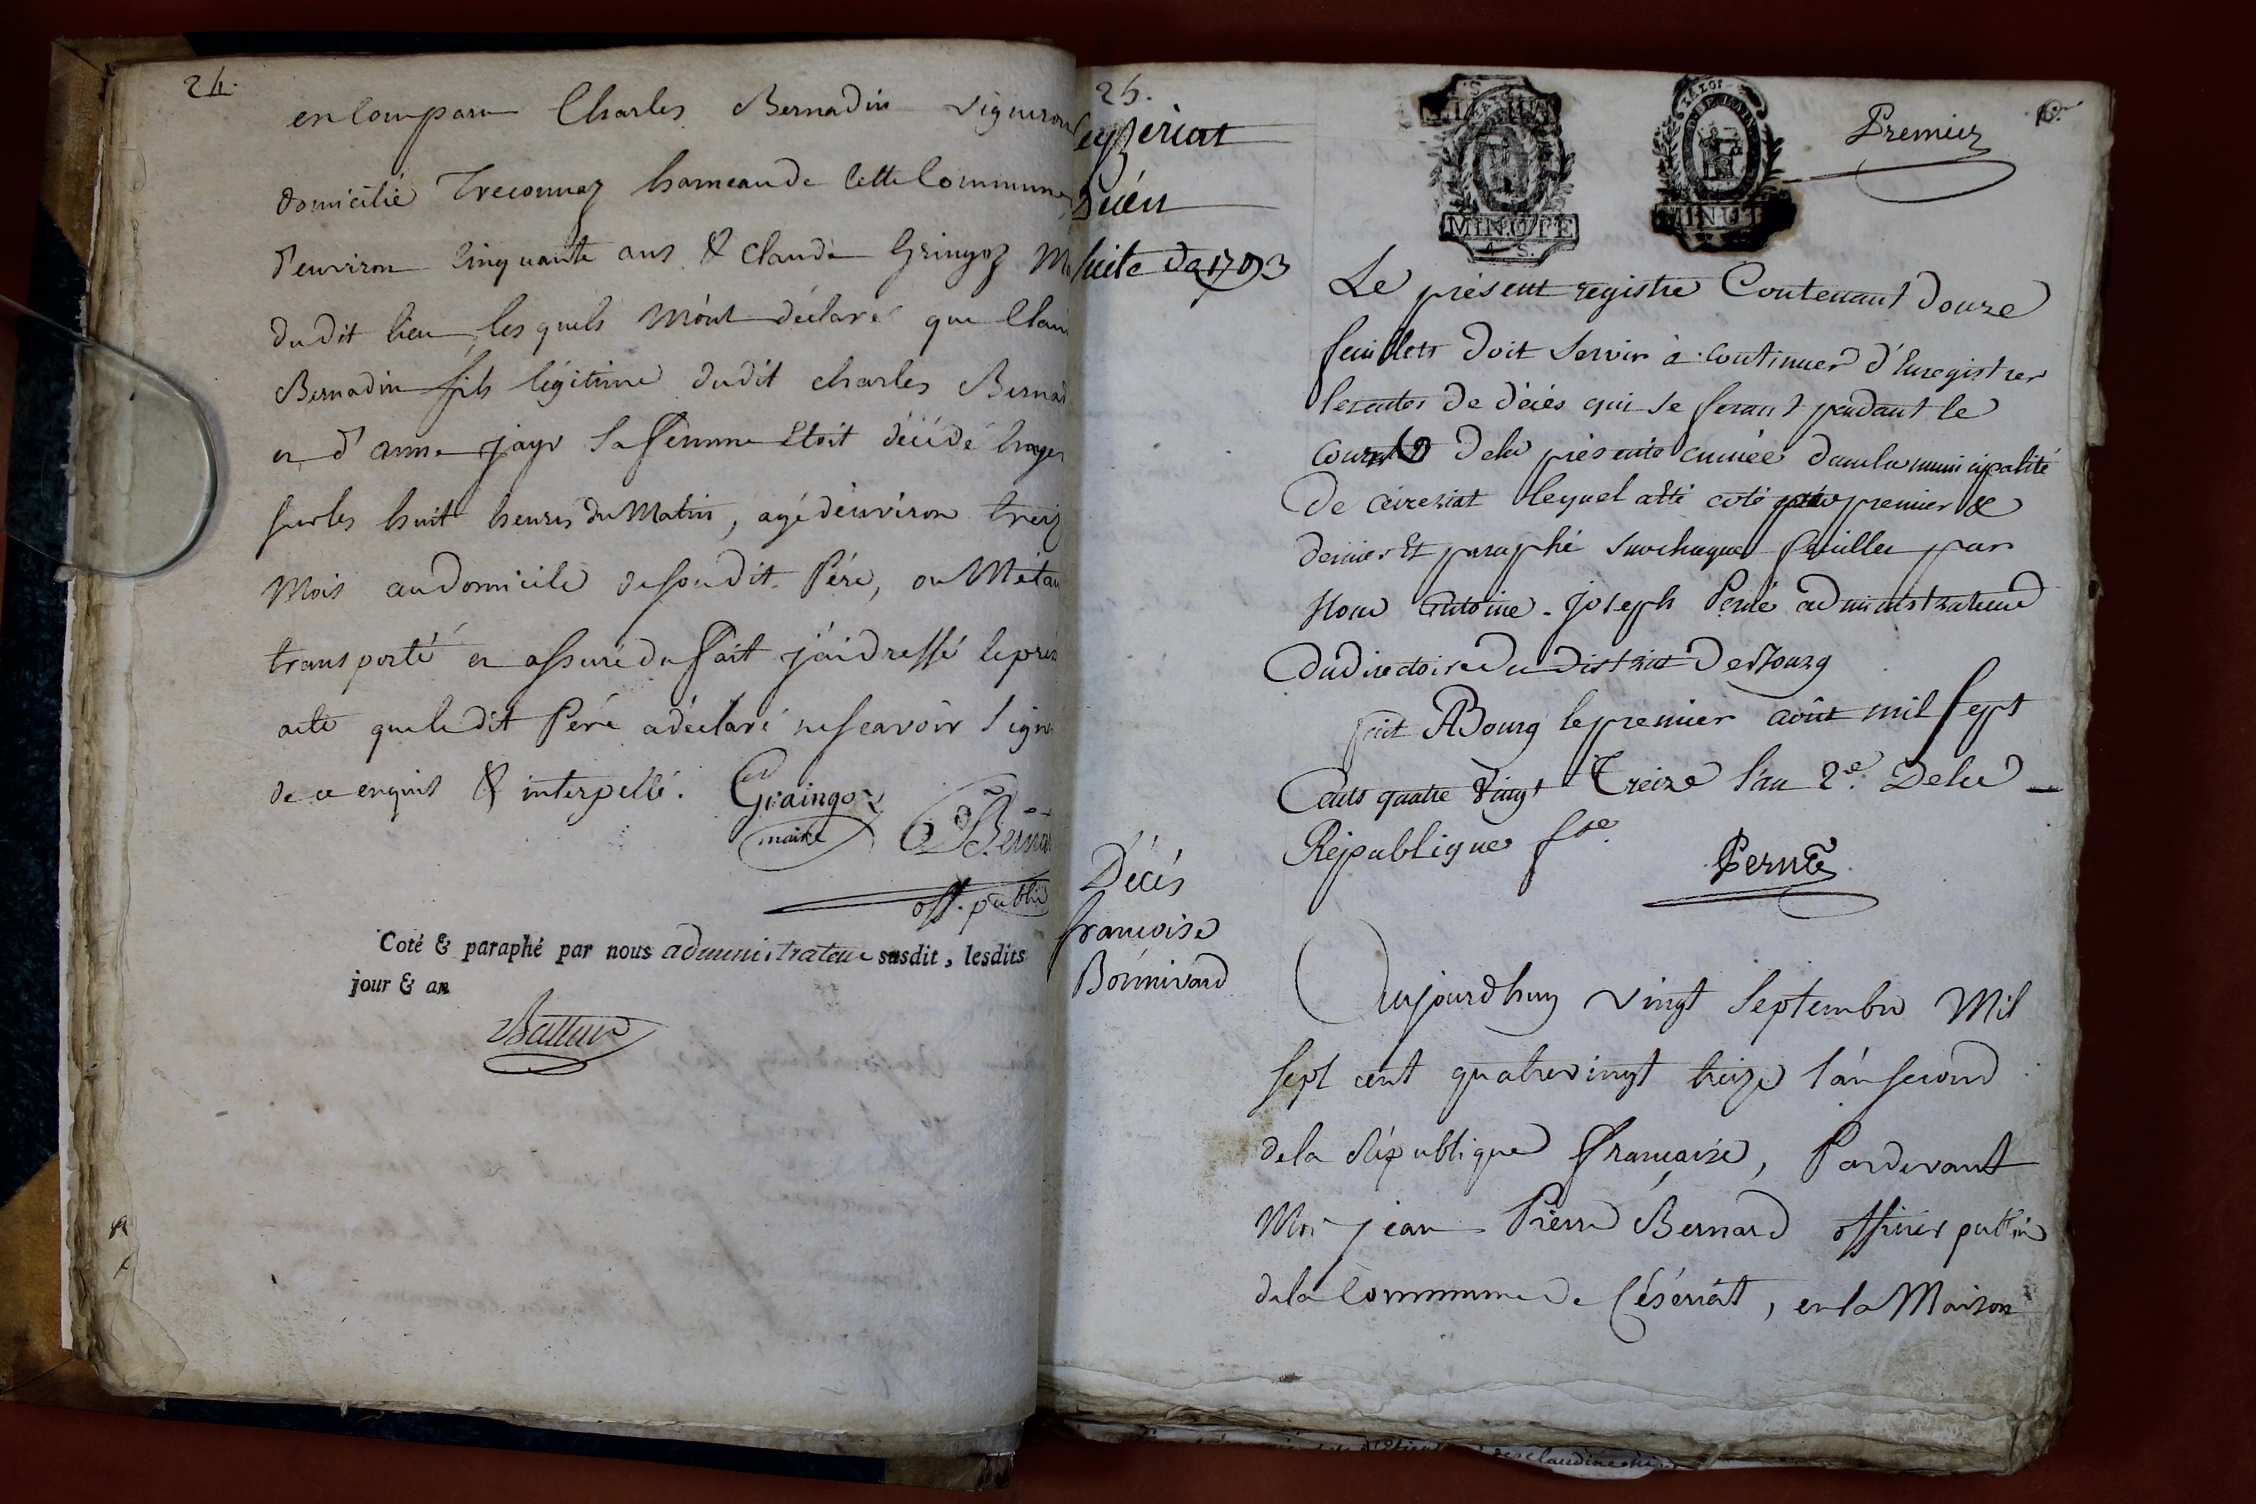 24.
en Comparu Charles Bernadin vigneron
domicilié Treconnaz hameau de Cette Commune
d'environ Cinquante ans & Claude Gringoz
du dit lieu, les quels m'ont déclaré que
Bernadin fils légitime dudit charles Bernad
et d'anne jayr sa femme Etoit décédé
sur les huit heures du Matin, agé d'environ treiz
Mois au domicile de son dit Pére, ou M'etan
transporté et assuré du fait j'ai dressé le prés
acte que le dit Pére a déclaré ne scavoir signe
de ce enquis & interpellé. Graingoz
maire
off. public
Coté & paraphé par nous administrateur susdit, lesdits
jour & an
25.
Décès
suite de 1793
MINUTE
4 S.
MINUT
LA LOI
Premier
Le présent registre Contenant douze
feuillets doit servir à continuer d'Enregistrer
les actes de décés qui se feront pendant le
cours de la présente année dans la municipalité
de ceizeriat lequel a été coté premier &
dernier Et paraphé sur chaque feuillet par
Nous Antoine-joseph Perné administrateur
du directoire du district de Bourg
fait A Bourg le premier août mil sept
Cents quatre vingt Treize l'an 2e. De la
République fse.
Perné
Décés
francoise
Bonnivard
Aujourdhuy vingt Septembre Mil
sept cent quatrevingt treize l'an second
de la République française, Pardevant
Moi jean Pierre Bernard officier public
de la Commune de Céseriat, en la Maison